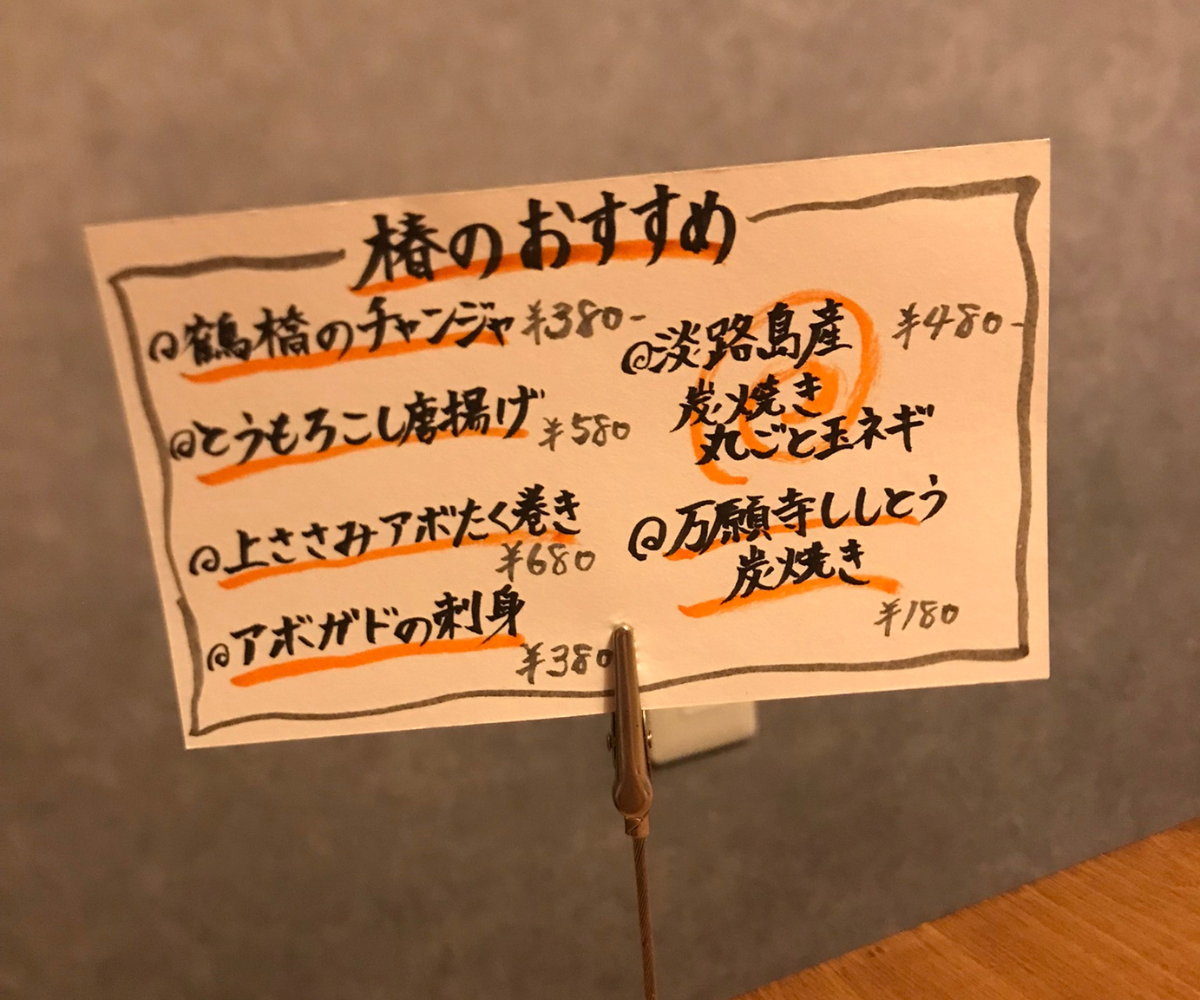 椿のおすすめ
@鶴橋のチャンジャ ¥380-
@とうもろこし唐揚げ ¥580
@上ささみアボたく巻き
¥680
@アボガドの刺身
¥380
@淡路島産 ¥480-
炭焼き
丸ごと玉ネギ
@万願寺ししとう
炭焼き
¥180